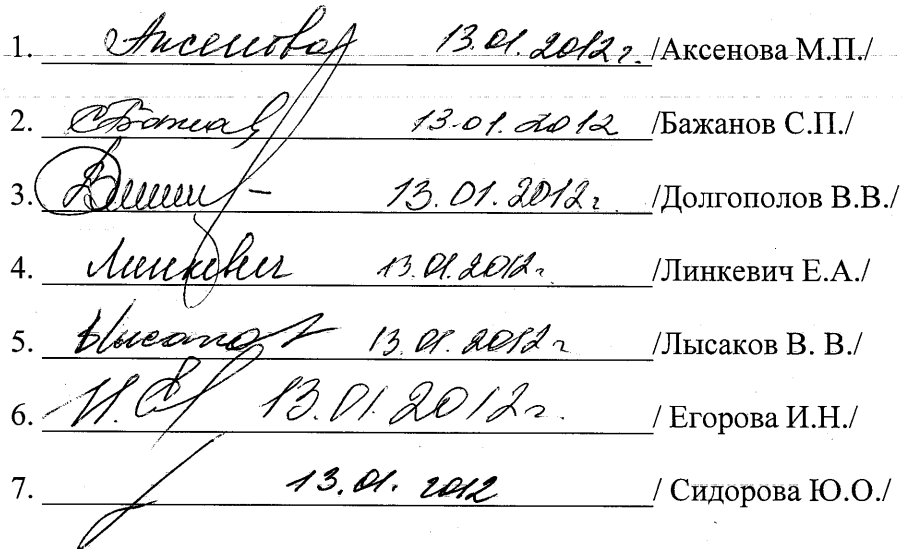 1. Аксенова 13.01.2012г. /Аксенова М.П./
2. 13.01.2012 /Бажанов С.П./
3. 13.01.2012г /Долгополов В.В./
4. Линкевич 13.01.2012г. /Линкевич Е.А./
5. 13.01.2012г /Лысаков В. В./
6. 13.01.2012г. / Егорова И.Н./
7. 13.01.2012 / Сидорова Ю.О./